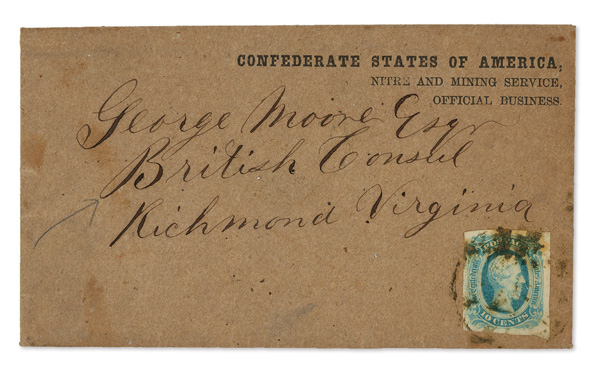 CONFEDERATE STATES OF AMERICA,
NITRE AND MINING SERVICE,
OFFICIAL BUSINESS.
George Moore Esqr
British Consul
Richmond Virginia
10 CENTS